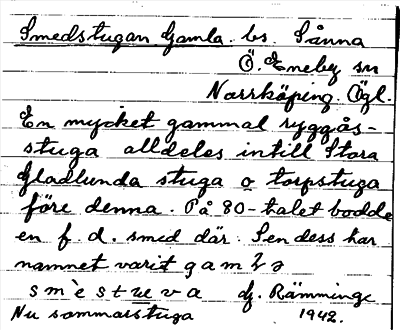 Smedstugan Gamla. bs. Sånna
Ö. Eneby sn
Norrköping. Ögl.
En mycket gammal ryggås-
stuga alldeles intill Stora
Gladlunda stuga o torpstuga
före denna. På 80-talet bodde
en f. d. smed där. Sen dess har
namnet varit gamla
smèstuva dj. Rämminge
Nu sommarstuga 1942.